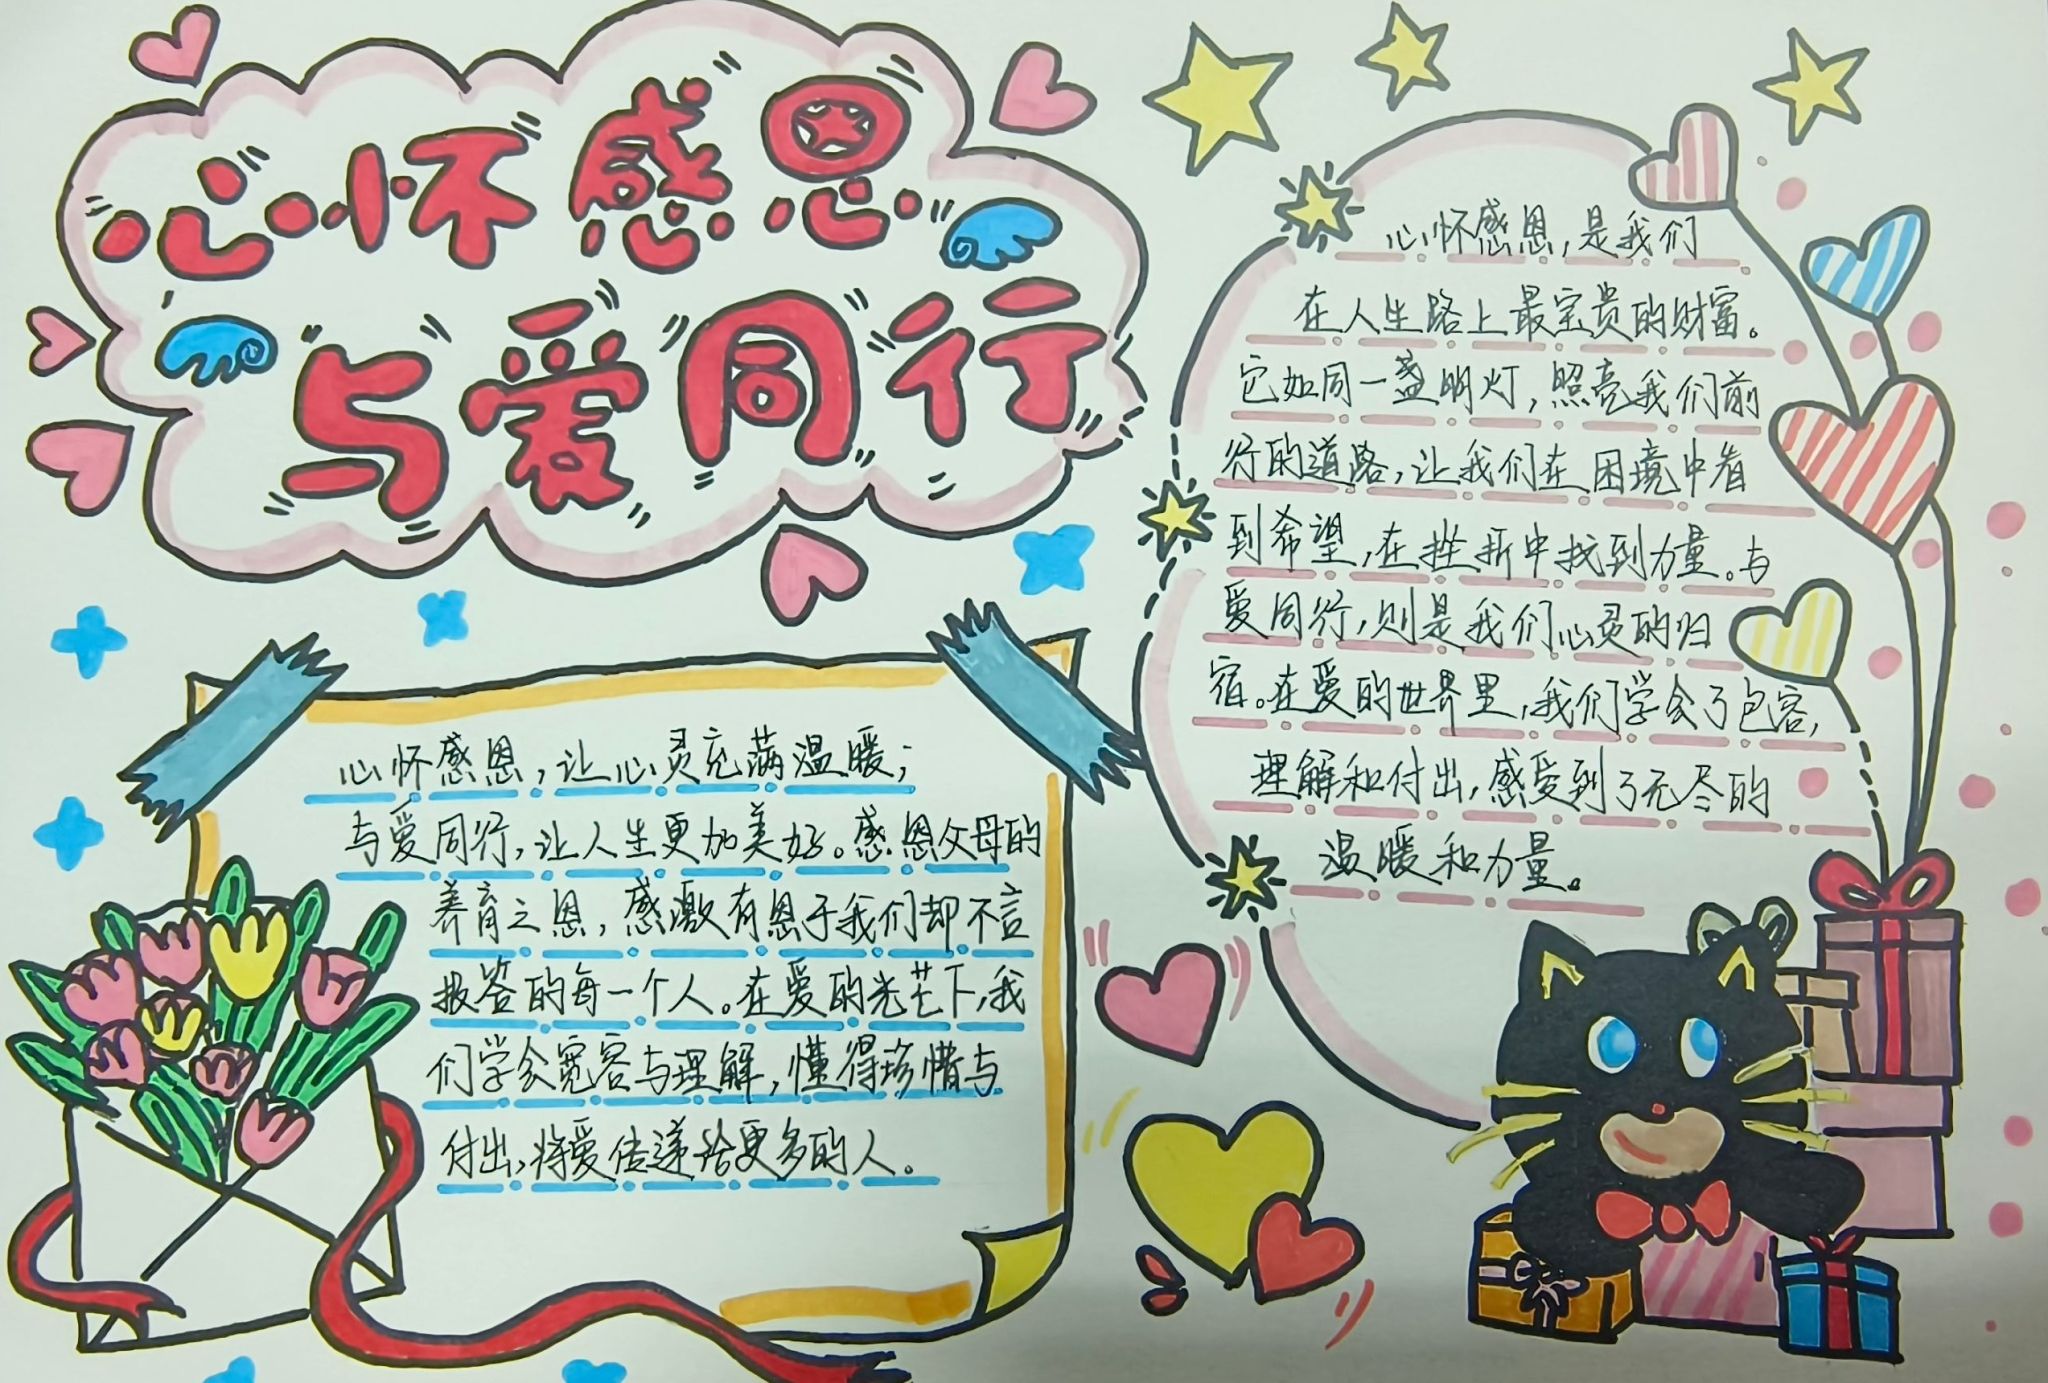 心怀感恩
与爱同行
心怀感恩，让心灵充满温暖；
与爱同行，让人生更加美好。感恩父母的
养育之恩，感激有恩于我们却不言
报答的每一个人。在爱的光芒下，我
们学会宽容与理解，懂得珍惜与
付出，将爱传递给更多的人。
心怀感恩，是我们
在人生路上最宝贵的财富。
它如同一盏明灯，照亮我们前
行的道路，让我们在困境中看
到希望，在挫折中找到力量。与
爱同行，则是我们心灵的归
宿。在爱的世界里，我们学会了包容，
理解和付出，感受到了无尽的
温暖和力量。